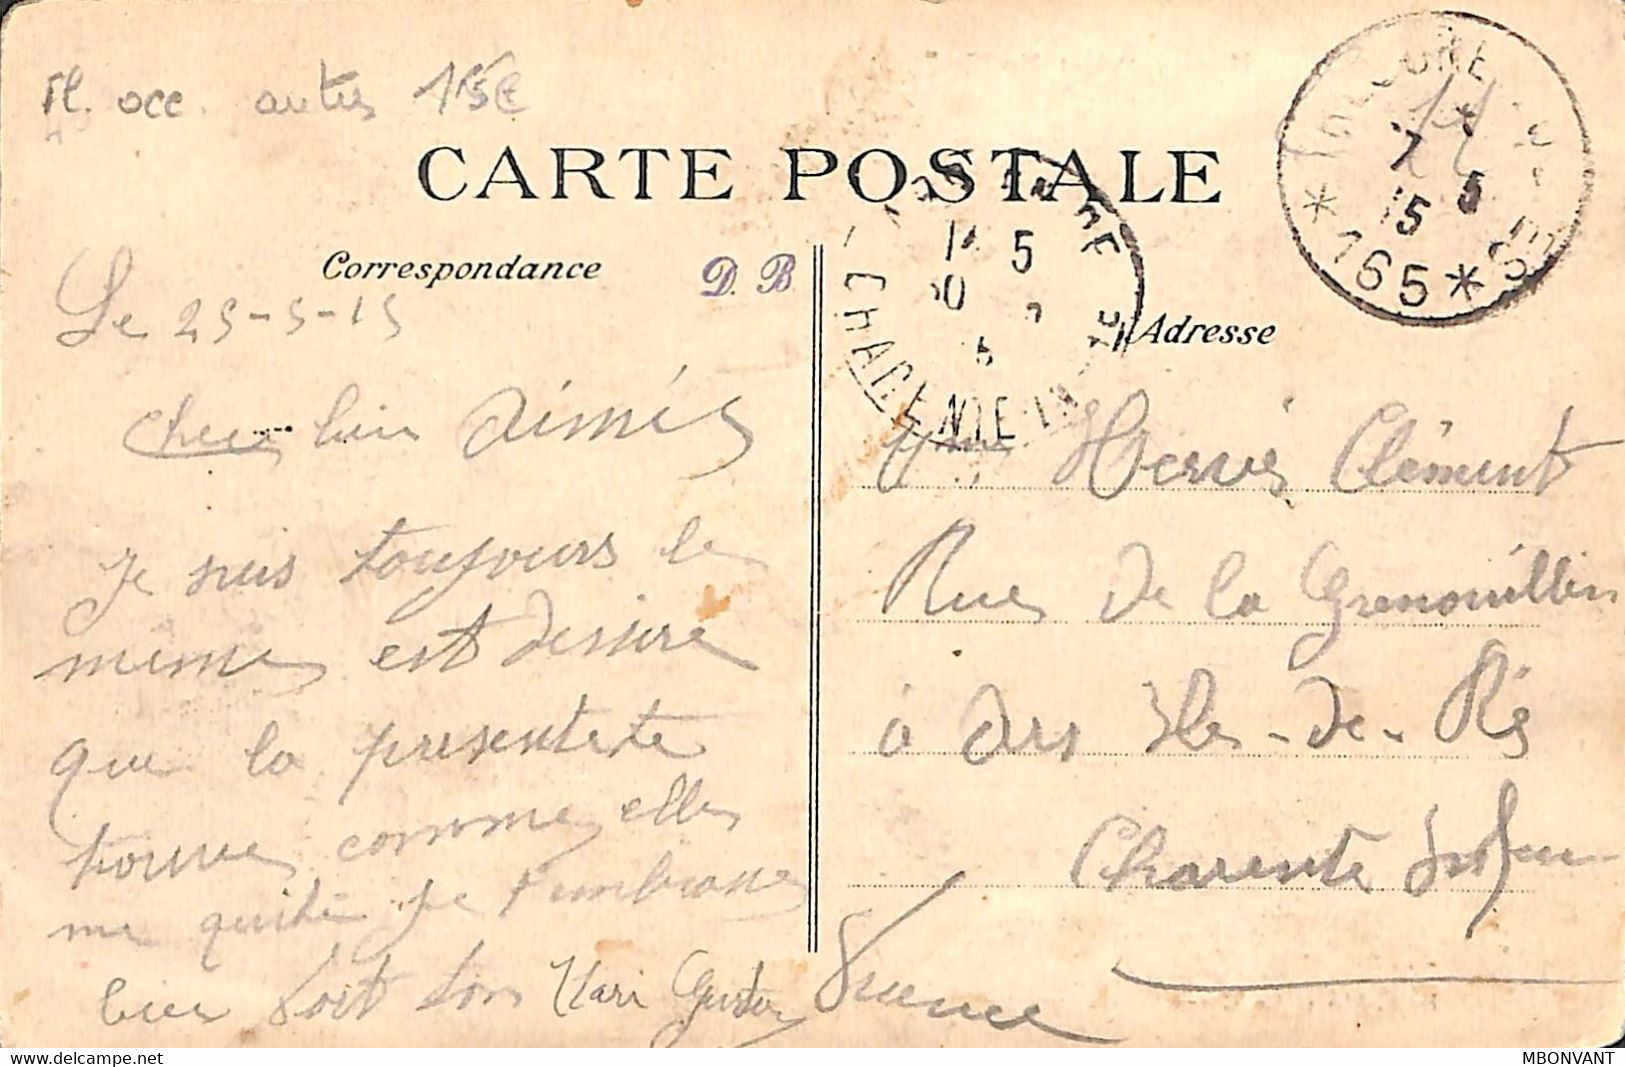 Fl. occ. autres 15€
CARTE POSTALE
Correspondance
D. B
Adresse
TRESOR ET POSTES
7 5
15
* 165 *
5
CHARENTE INFRE
Le 25-5-15
cher bien aimés
Je suis toujours le
meme est dessire
que la presente te
trouve comme elles
me quite Je t'embrasse
bien fort ton Mari Gustave
Mme Hervé Clément
Rue de la Grenouillère
à Ars Ile-de-Ré
Charente Infeu
France
MBONVANT